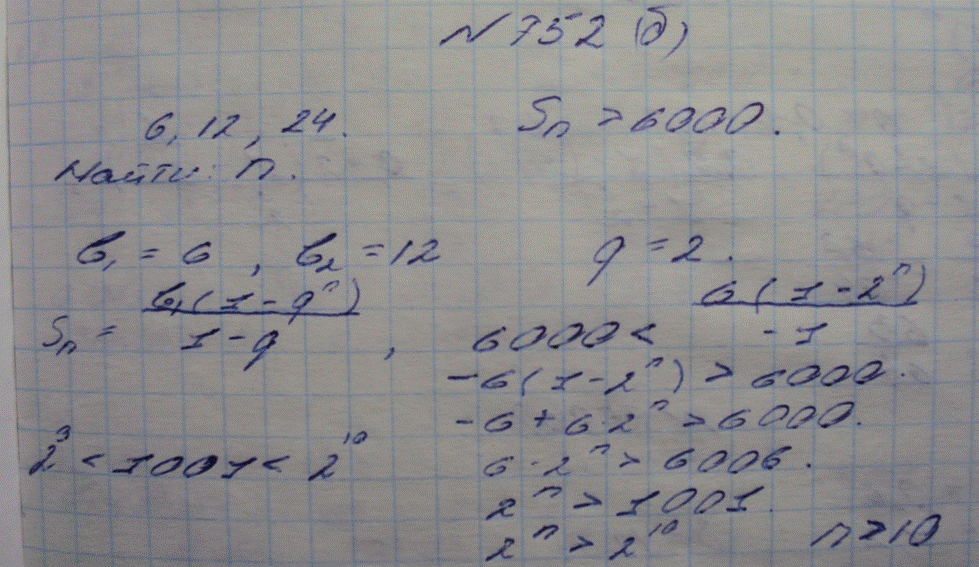 N 752 (б)
6, 12, 24. Sn > 6000.
Найти: n.
b₁ = 6, b₂ = 12 q = 2.
Sn = b₁(1-qⁿ) / 1-q, 6000 < 6(1-2ⁿ) / -1
-6(1-2ⁿ) > 6000.
-6 + 6·2ⁿ > 6000.
2⁹ < 1001 < 2¹⁰ 6·2ⁿ > 6006.
2ⁿ > 1001.
2ⁿ > 2¹⁰ n > 10